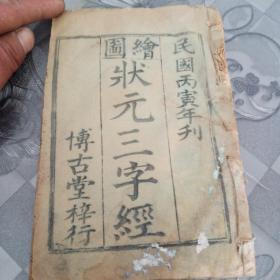 民國丙寅年刊
繪圖
狀元三字經
博古堂梓行